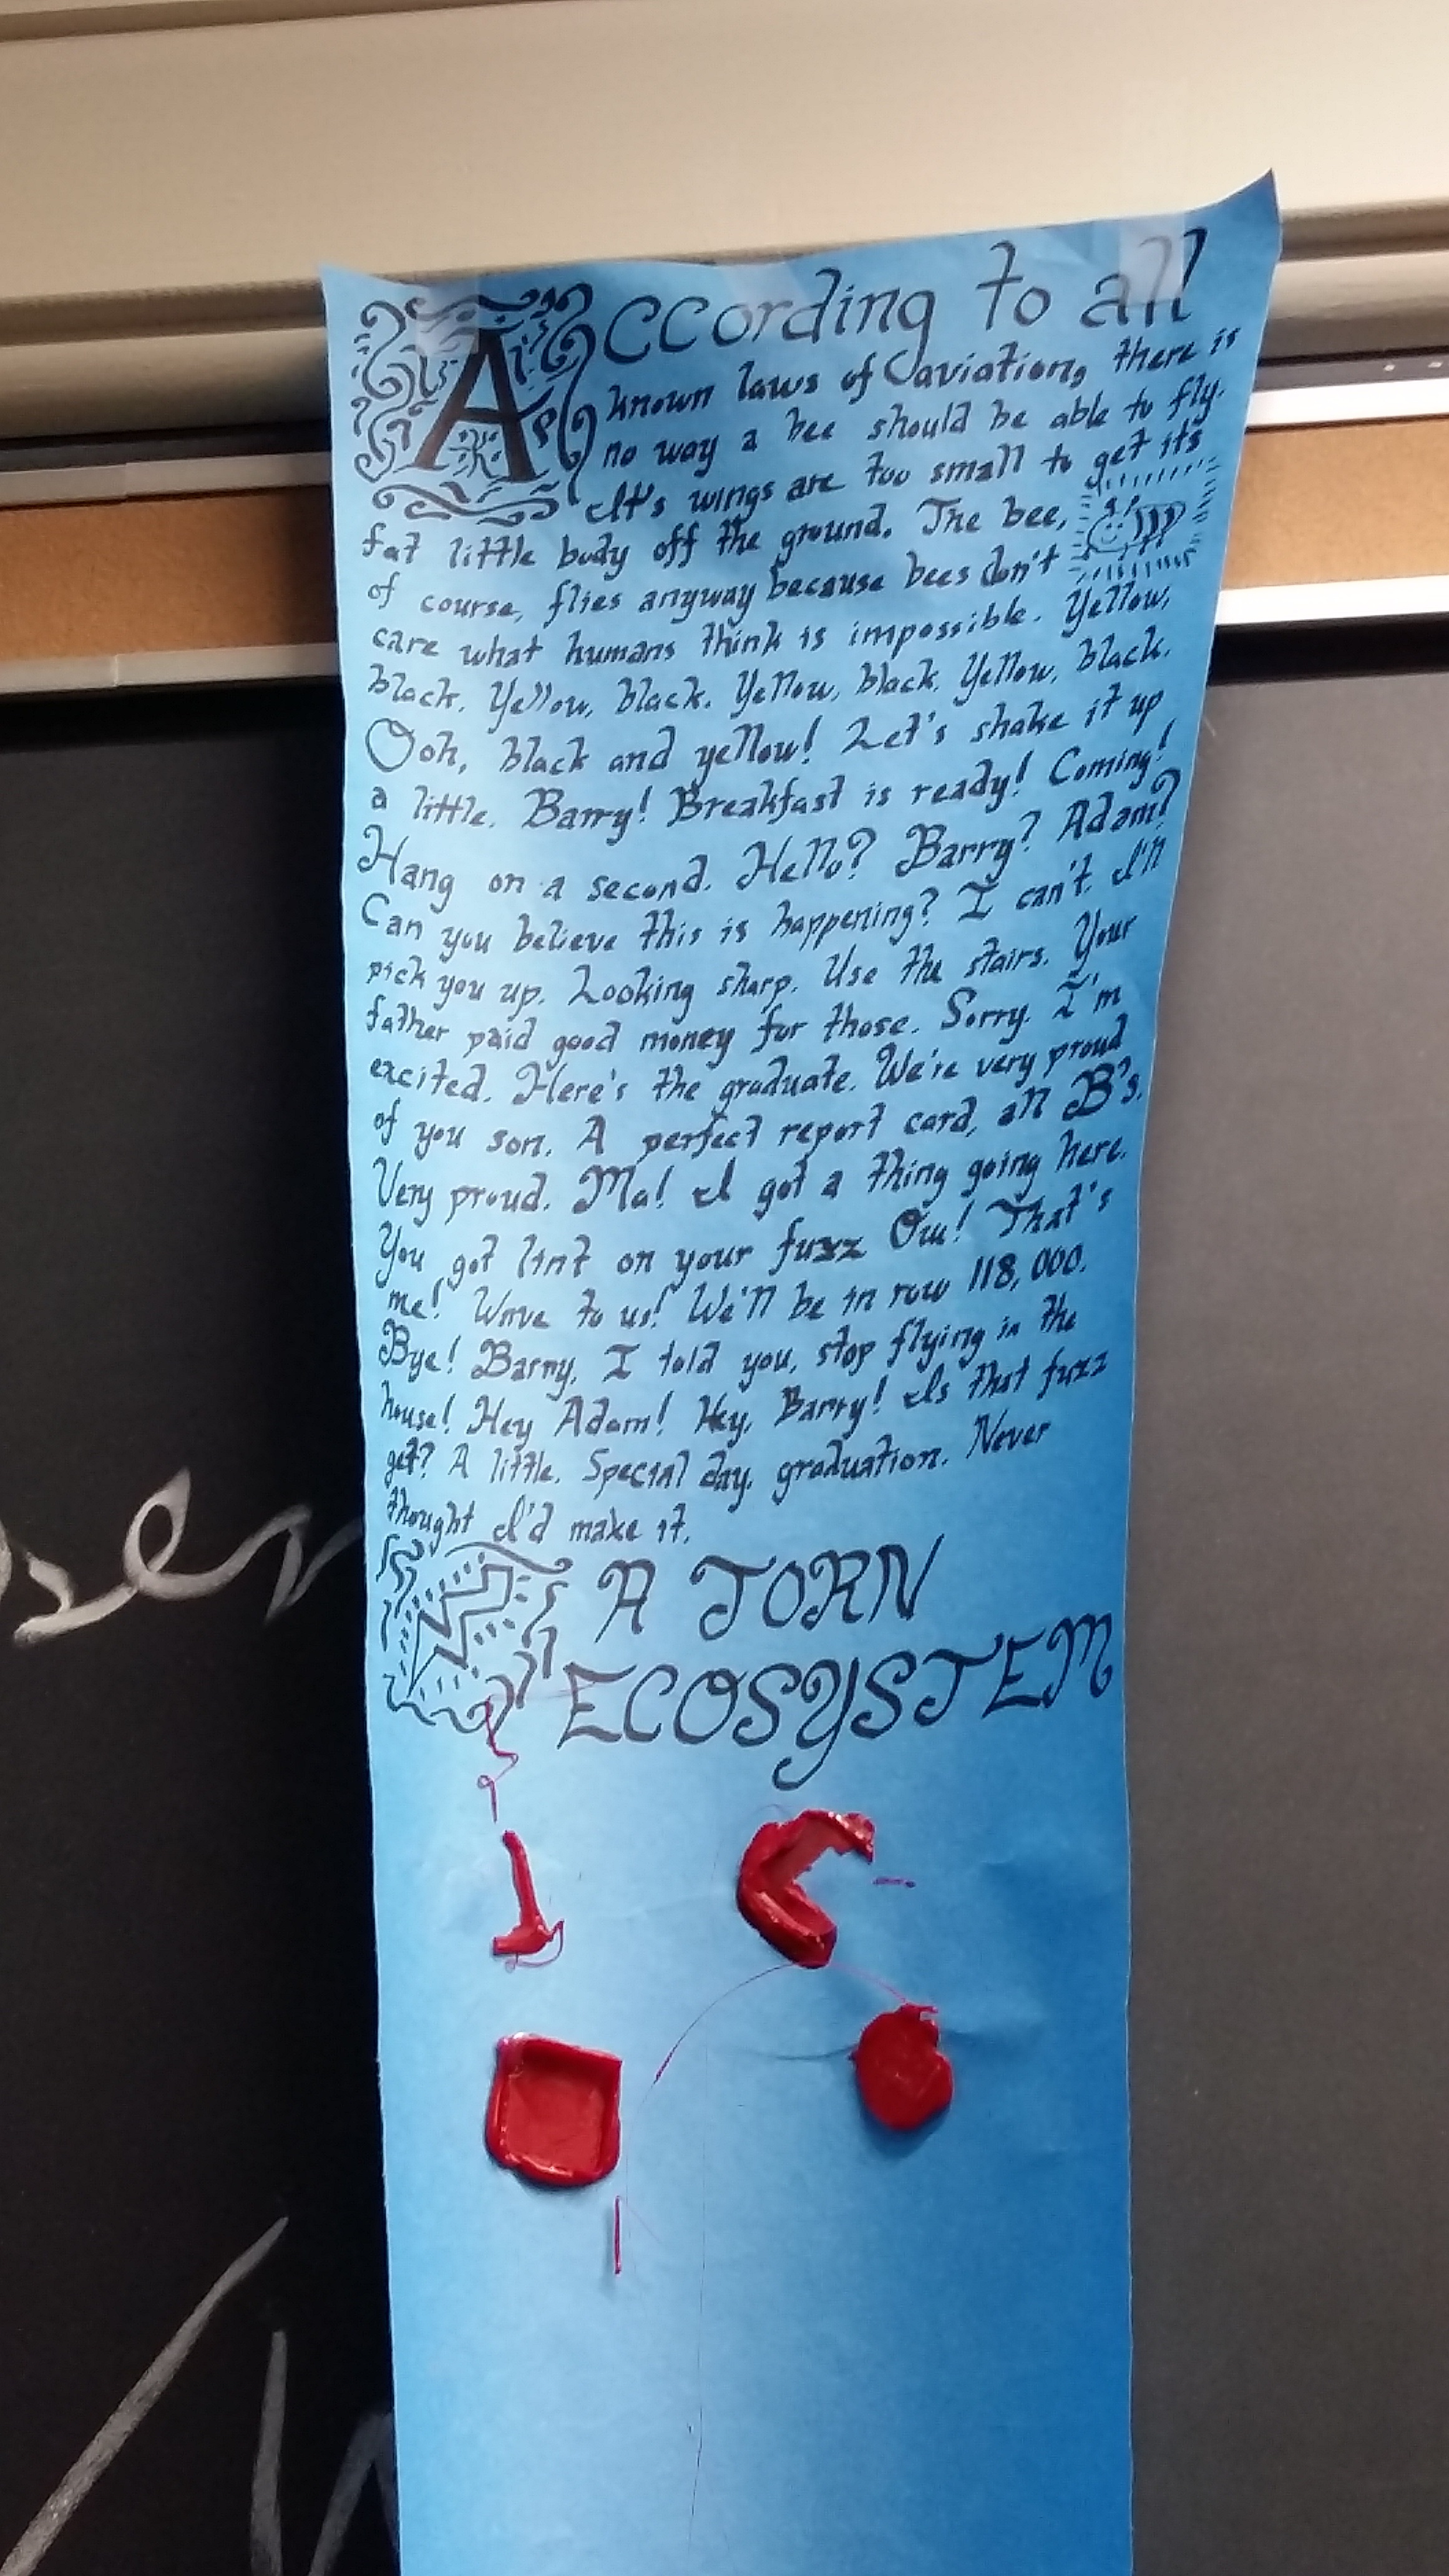 According to all
known laws of aviation, there is
no way a bee should be able to fly.
It's wings are too small to get its
fat little body off the ground. The bee,
of course, flies anyway because bees don't
care what humans think is impossible. Yellow,
black. Yellow, black. Yellow, black. Yellow, black.
Ooh, black and yellow! Let's shake it up
a little. Barry! Breakfast is ready! Coming!
Hang on a second. Hello? Barry? Adam?
Can you believe this is happening? I can't. I'll
pick you up. Looking sharp. Use the stairs. Your
father paid good money for those. Sorry. I'm
excited. Here's the graduate. We're very proud
of you son. A perfect report card, all B's.
Very proud. Ma! I got a thing going here.
You got lint on your fuzz Ow! That's
me! Wave to us! We'll be in row 118,000.
Bye! Barry, I told you, stop flying in the
house! Hey Adam! Hey, Barry! Is that fuzz
gel? A little. Special day, graduation. Never
thought I'd make it.
A TORN
ECOSYSTEM